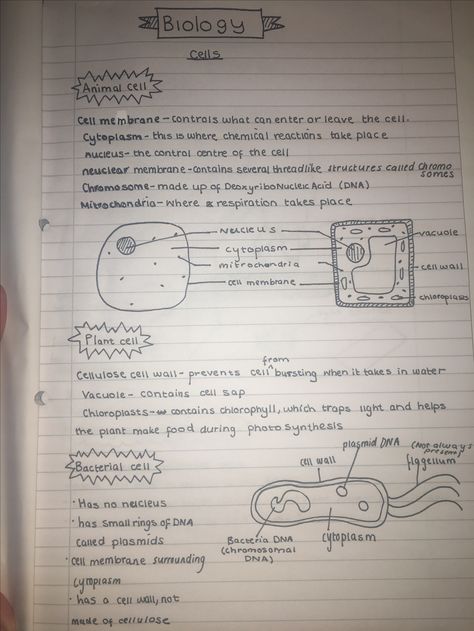 Biology
Cells
Animal cell
Cell membrane - controls what can enter or leave the cell.
Cytoplasm - this is where chemical reactions take place
nucleus - the control centre of the cell
neuclear membrane - contains several threadlike structures called Chromo
somes
Chromosome - made up of DeoxyriboNucleic Acid (DNA)
Mitochondria - where respiration takes place
Neucleus
cytoplasm
mitochondria
cell membrane
vacuole
cell wall
chloroplasts
Plant cell
from
Cellulose cell wall - prevents cell ^ bursting when it takes in water
Vacuole - contains cell sap
Chloroplasts - contains chlorophyll, which traps light and helps
the plant make food during photosynthesis
Bacterial cell
• Has no neucleus
• has small rings of DNA
called plasmids
• cell membrane surrounding
cytoplasm
• has a cell wall, not
made of cellulose
cell wall
plasmid DNA
(Not always
present)
flagellum
Bacteria DNA
(chromosomal
DNA)
cytoplasm